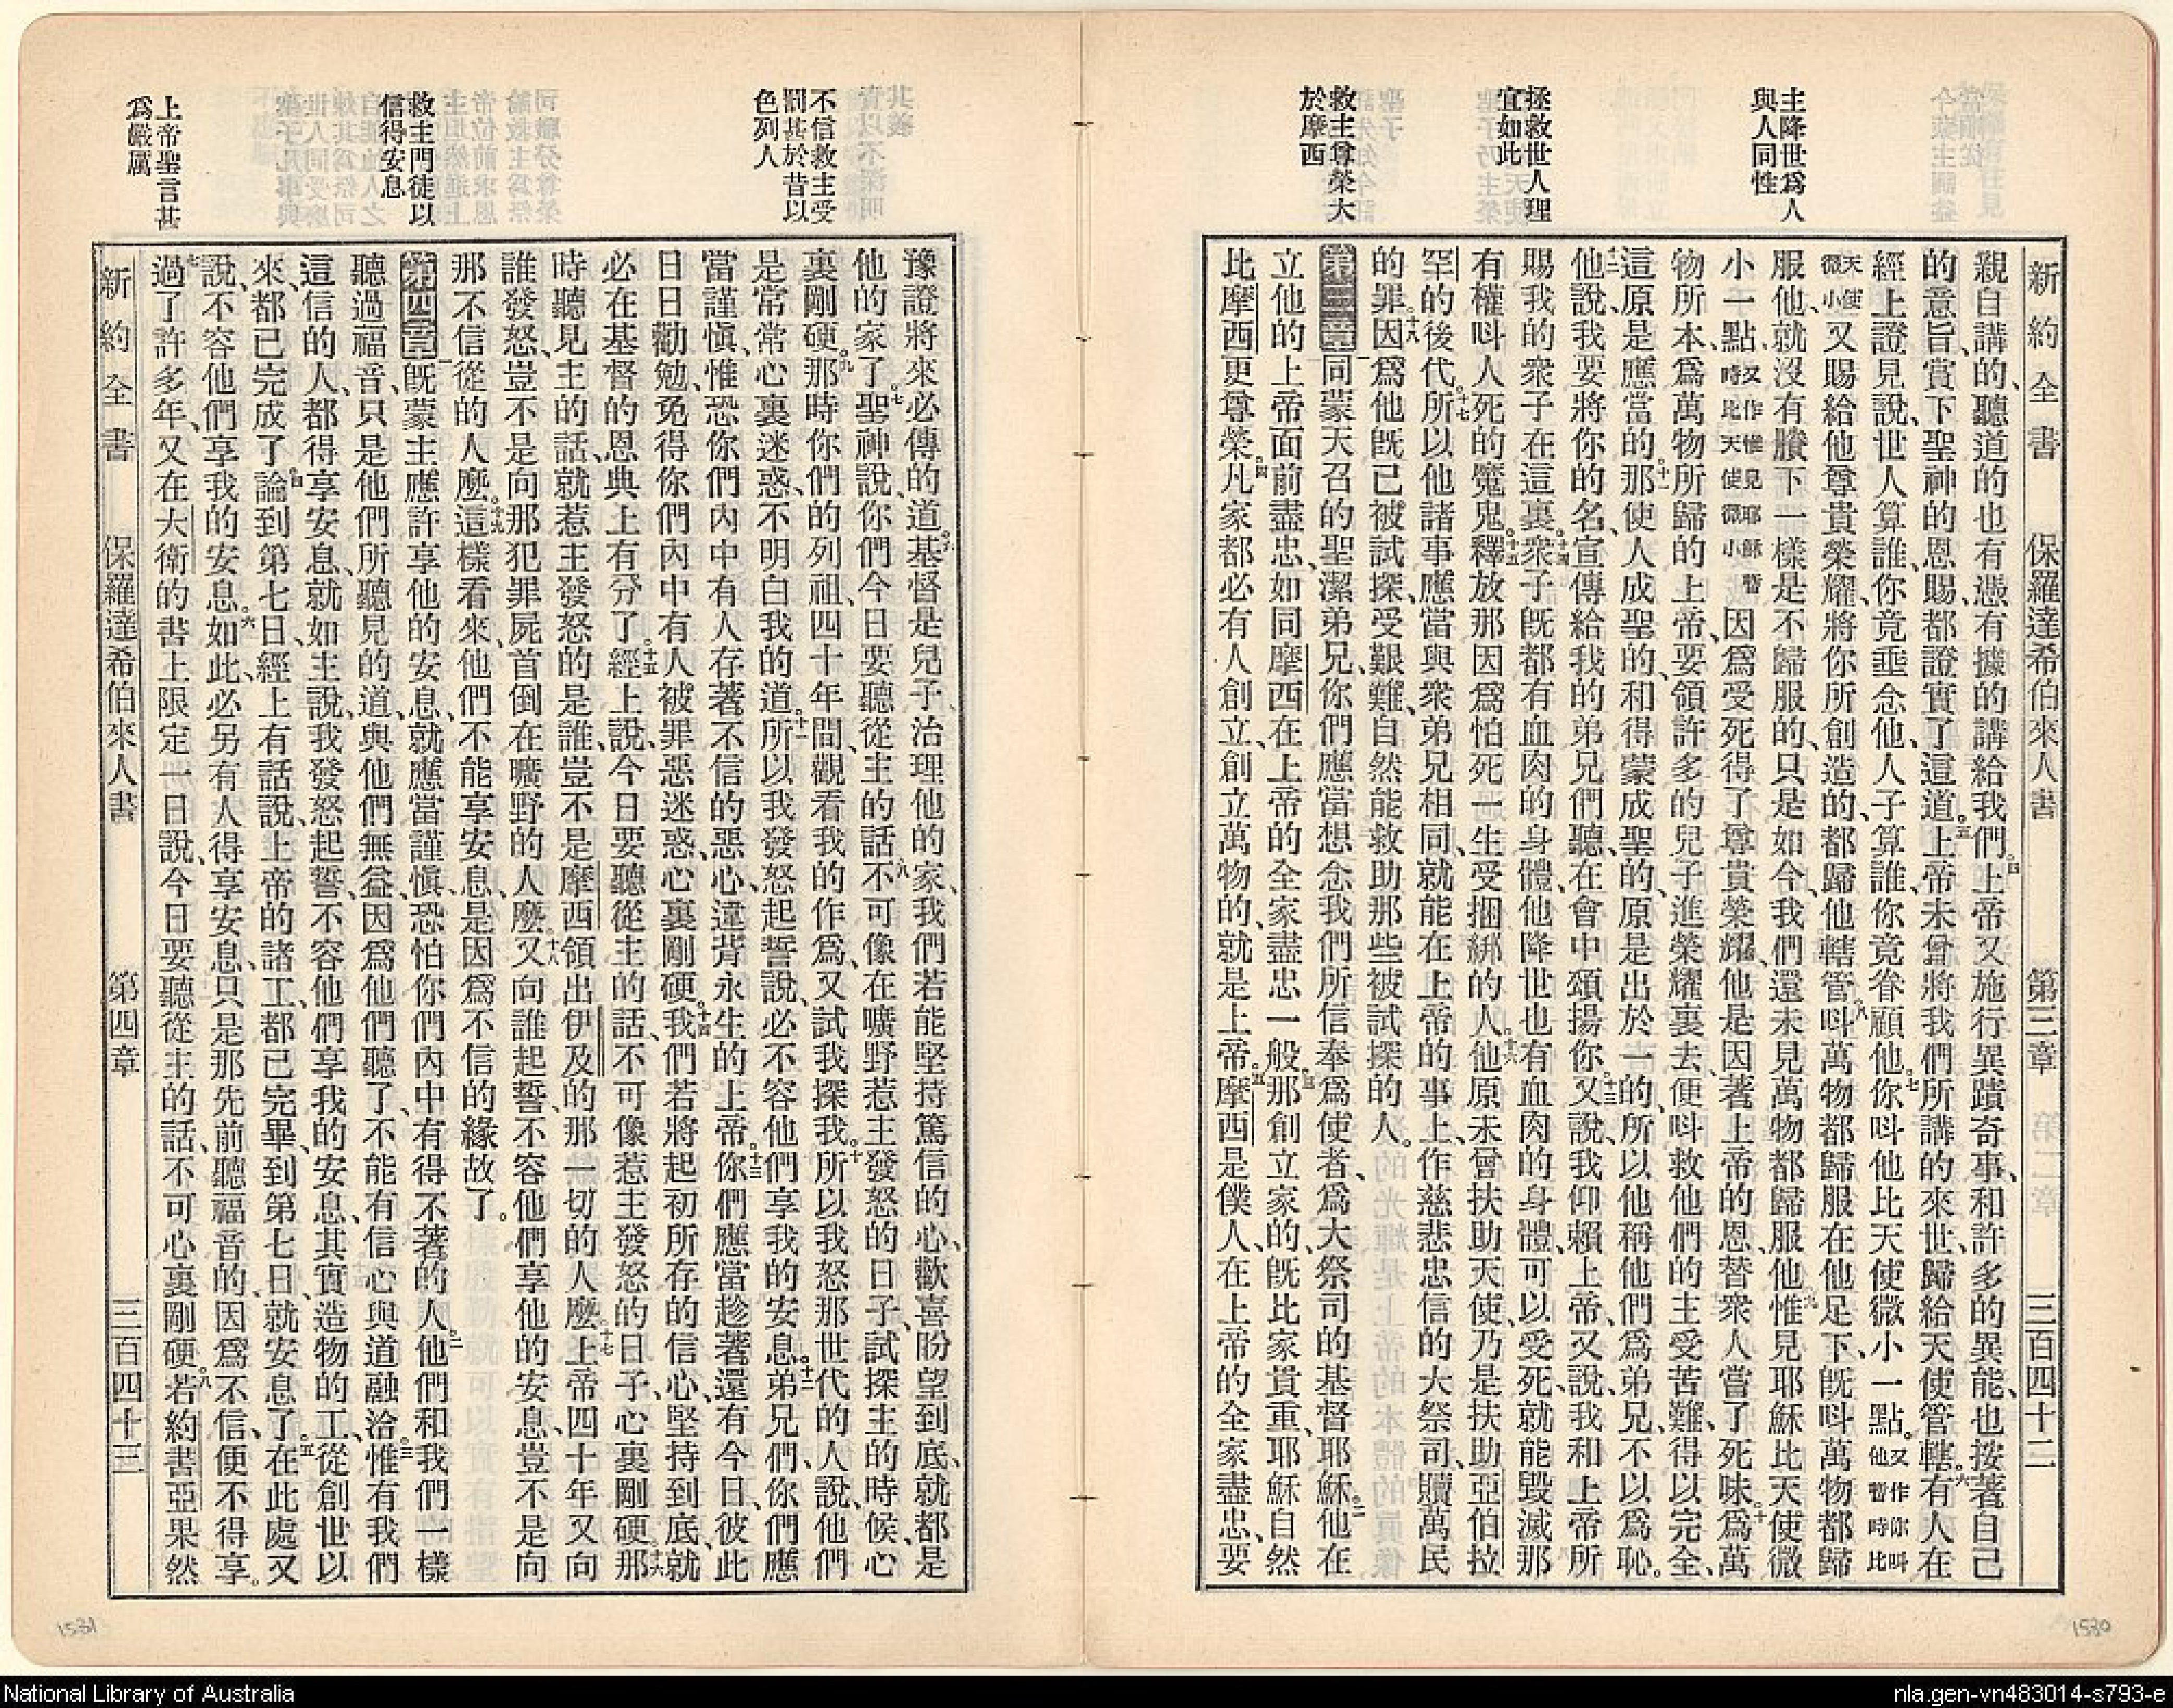 主降世爲人
與人同性
拯救世人理
宜如此
救主尊榮大
於摩西
新約全書 保羅達希伯來人書 第三章 三百四十二
親自講的、聽道的也有憑有據的講給我們。四上帝又施行異蹟奇事、和許多的異能、也按著自己
的意旨、賞下聖神的恩賜、都證實了這道。五上帝未曾將我們所講的來世、歸給天使管轄。六有人在
經上證見說、世人算誰、你竟垂念他、人子算誰、你竟眷顧他。七你呌他比天使微小一點。又作你呌他暫時比
天使微小又賜給他尊貴榮耀、將你所創造的、都歸他轄管。八呌萬物都歸服在他足下、旣呌萬物都歸
服他、就沒有賸下一樣是不歸服的、只是如今、我們還未見萬物都歸服他。九惟見耶穌比天使微
小一點又作惟見耶穌暫時比天使微小因爲受死得了尊貴榮耀、他是因著上帝的恩、替衆人當了死味。十爲萬
物所本、爲萬物所歸的上帝、要領許多的兒子進榮耀裏去、便呌救他們的主受苦難、得以完全、
這原是應當的。十一那使人成聖的、和得蒙成聖的、原是出於一的、所以他稱他們爲弟兄、不以爲恥。
十二他說、我要將你的名、宣傳給我的弟兄們聽、在會中頌揚你。十三又說、我仰賴上帝、又說、我和上帝所
賜我的衆子在這裏。十四衆子旣都有血肉的身體、他降世也有血肉的身體、可以受死、就能毀滅那
有權呌人死的魔鬼。十五釋放那因爲怕死一生受捆綁的人。十六他原未曾扶助天使、乃是扶助亞伯拉
罕的後代。十七所以他諸事應當與衆弟兄相同、就能在上帝的事上、作慈悲忠信的大祭司、贖萬民
的罪。十八因爲他旣已被試探、受艱難、自然能救助那些被試探的人。
第三章一同蒙天召的聖潔弟兄、你們應當想念我們所信奉爲使者、爲大祭司的基督耶穌。二他在
立他的上帝面前盡忠、如同摩西在上帝的全家盡忠一般。三那創立家的、旣比家貴重、耶穌自然
比摩西更尊榮。四凡家都必有人創立、創立萬物的、就是上帝。五摩西是僕人、在上帝的全家盡忠、要
1530
不信救主受
罰甚於昔以
色列人
救主門徒以
信得安息
上帝聖言甚
爲嚴厲
豫證將來必傳的道。六基督是兒子、治理他的家、我們若能堅持篤信的心、歡喜盼望到底、就都是
他的家了。七聖神說、你們今日要聽從主的話。八不可像在曠野惹主發怒的日子、試探主的時候、心
裏剛硬。九那時你們的列祖、四十年間、觀看我的作爲、又試我探我。十所以我怒那世代的人說、他們
是常常心裏迷惑、不明白我的道。十一所以我發怒起誓說、必不容他們享我的安息。十二弟兄們、你們應
當謹愼、惟恐你們內中有人存著不信的惡心、違背永生的上帝。十三你們應當趁著還有今日、彼此
日日勸勉、免得你們內中有人被罪惡迷惑、心裏剛硬。十四我們若將起初所存的信心、堅持到底、就
必在基督的恩典上有分了。十五經上說、今日要聽從主的話、不可像惹主發怒的日子、心裏剛硬。十六那
時聽見主的話、就惹主發怒的是誰、豈不是摩西領出伊及的那一切的人麼。十七上帝四十年又向
誰發怒、豈不是向那犯罪屍首倒在曠野的人麼。十八又向誰起誓、不容他們享他的安息、豈不是向
那不信從的人麼。十九這樣看來、他們不能享安息、是因爲不信的緣故了。
第四章一旣蒙主應許享他的安息、就應當謹愼、恐怕你們內中有得不著的人。二他們和我們一樣
聽過福音、只是他們所聽見的道、與他們無益、因爲他們聽了、不能有信心與道融洽。三惟有我們
這信的人、都得享安息、就如主說、我發怒起誓、不容他們享我的安息、其實造物的工、從創世以
來、都已完成了。四論到第七日、經上有話說、上帝的諸工、都已完畢、到第七日就安息了。五在此處又
說、不容他們享我的安息。六如此、必另有人得享安息、只是那先前聽福音的、因爲不信、便不得享。
七過了許多年、又在大衛的書上、限定一日說、今日要聽從主的話、不可心裏剛硬。八若約書亞果然
新約全書 保羅達希伯來人書 第四章 三百四十三
1531
National Library of Australia
nla.gen-vn483014-s793-e